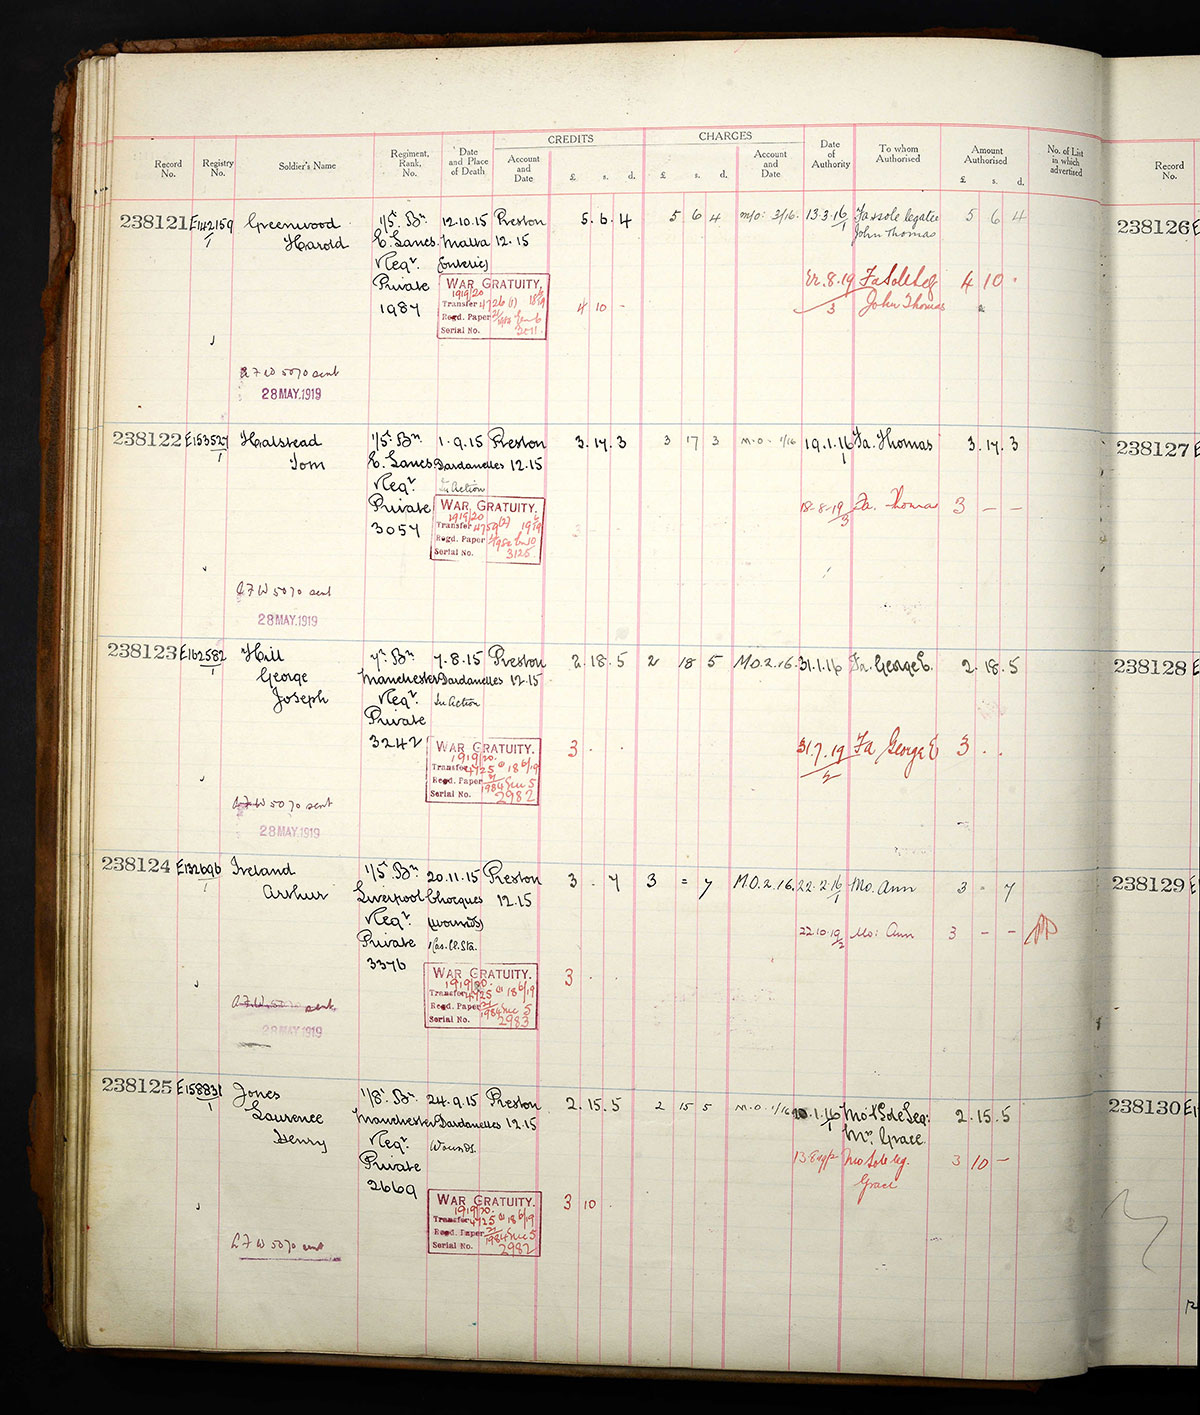 CREDITS CHARGES
Record No. Registry No. Soldier's Name Regiment, Rank, No. Date and Place of Death Account and Date £ s. d. £ s. d. Account and Date Date of Authority To whom Authorised Amount Authorised £ s. d. No. of List in which advertised Record No.
238121 E142159/1 Greenwood 1/5 Bn 12.10.15 Preston 5.6.4 5 6 4 m/o: 3/16. 13.3.16/1 Fa sole legatee 5 6 4
Harold E. Lancs. Malta 12.15 John Thomas
Regr. (Enteric)
Private WAR GRATUITY. 8.19 Fa Sole Leg 4 10 .
1987 1919/20 John Thomas
Transfer 4 10 -
Regd. Paper
Serial No. 2011
A F W 5070 sent
28 MAY.1919
238126 E
238122 E153527/1 Halstead 1/5 Bn 1.9.15 Preston 3.17.3 3 17 3 M.O. 1/16 19.1.16/1 Fa. Thomas 3.17.3
Tom E. Lancs Dardanelles 12.15
Regr. In Action
Private WAR GRATUITY. 18-8-19/3 Fa. Thomas 3 - -
3057 1919/20
Transfer 4759
Regd. Paper
Serial No. 3125
A F W 5070 sent
28 MAY.1919
238127 E
238123 E162582/1 Hill 7 Bn 7.8.15 Preston 2.18.5 2 18 5 M.O.2.16. 31.1.16 Fa. George E. 2.18.5
George Manchester Dardanelles 12.15
Joseph Regr. In Action
Private
3242 WAR GRATUITY. 3 . . 31.7.19/2 Fa George E 3 . .
1919/20.
Transfer 4725 18 6/19
Regd. Paper 1984 5
Serial No. 2982
A F W 5070 sent
28 MAY.1919
238128 E
238124 E132696/1 Ireland 1/5 Bn 20.11.15 Preston 3 . 7 3 = 7 M.O.2.16. 22.2.16/1 Mo. Ann 3 - 7
Arthur Liverpool Chocques 12.15
Regr. (Wounds)
Private 1 Cas. Cl. Sta. 22.10.19/2 Mo: Ann 3 - -
3376
WAR GRATUITY. 3 . .
1919/20.
Transfer 4725 18 6/19
Regd. Paper 1984 5
Serial No. 2983
A F W 5070 sent
28 MAY.1919
238129 E
238125 E158831/1 Jones 1/8 Bn 24.9.15 Preston 2.15.5 2 15 5 M.O 1/16 20.1.16/1 Mo & Sole Leg: 2.15.5
Laurence Manchester Dardanelles 12.15 Mrs. Grace.
Henry Regr. Wounds.
Private Mo Sole leg. 3 10 -
2669 Grace
WAR GRATUITY. 3 10 .
1919/20.
Transfer 4725 18 6/19
Regd. Paper 1984 5
Serial No. 2982
A F W 5070 sent
238130 E